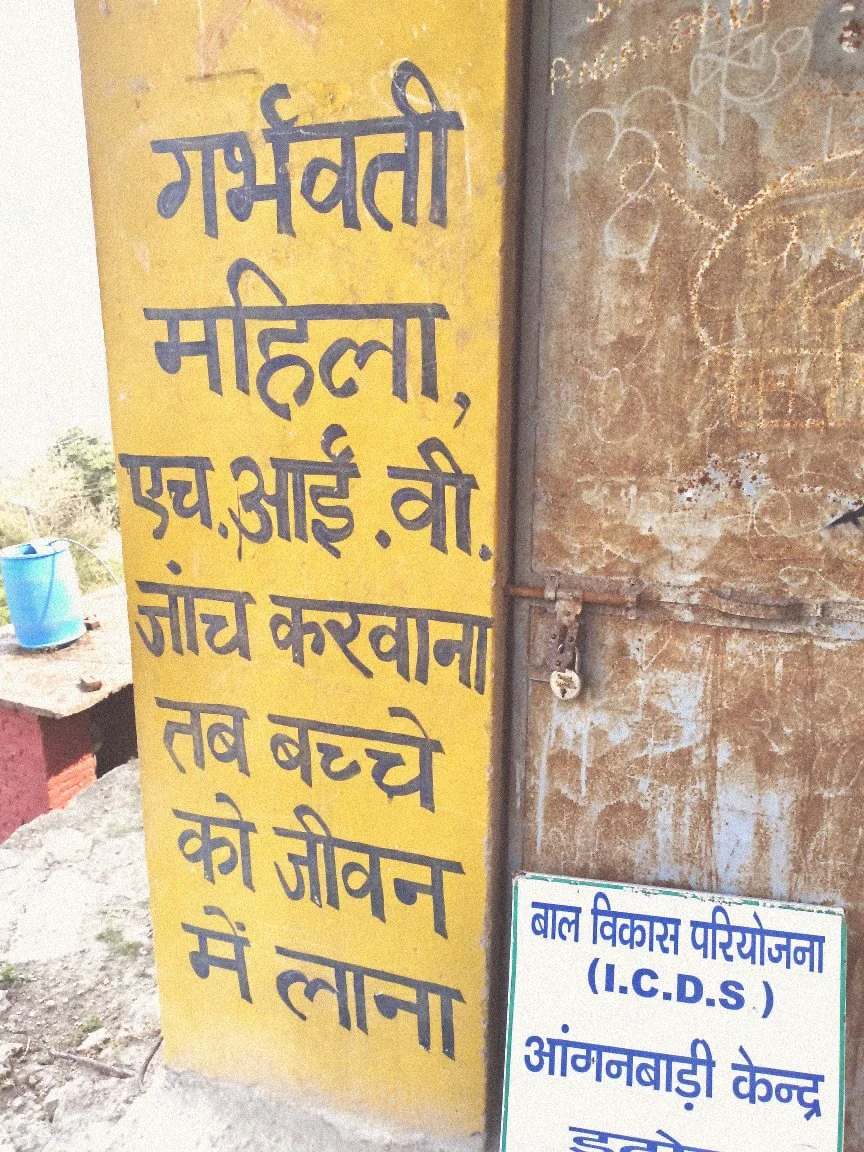 गर्भवती
महिला,
एच.आई.वी.
जांच करवाना
तब बच्चे
को जीवन
में लाना
बाल विकास परियोजना
(I.C.D.S.)
आंगनबाड़ी केन्द्र